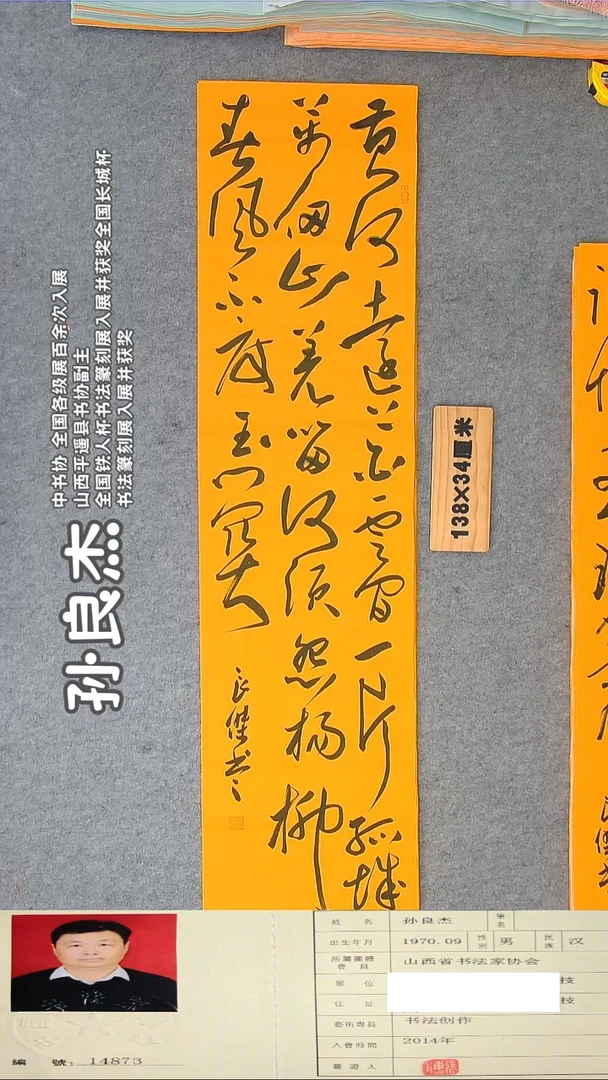 黄河遠上白雲間一片孤城
萬仞山羌笛何須怨楊柳
春風不度玉門關
良傑書
138×34厘米
孙良杰
中书协 全国各级展百余次入展
山西平遥县书协副主
全国铁人杯书法篆刻展入展并获奖全国长城杯
书法篆刻展入展并获奖
姓名 孙良杰 筆名
出生年月 1970.09 性别 男 民族 汉
所屬團體會員 山西省书法家协会
單位 技
住址 技
藝術專長 书法创作
入會時間 2014年
簽證人
編號：14873